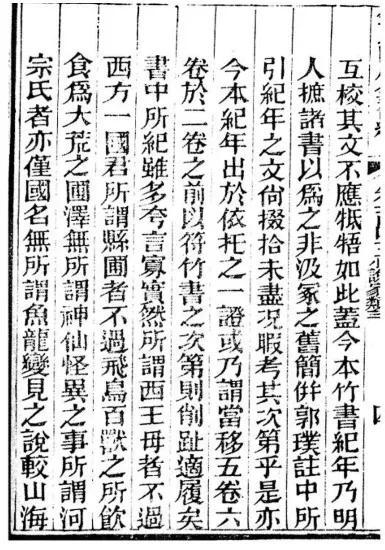 互校其文不應牴牾如此蓋今本竹書紀年乃明
人摭諸書以爲之非汲冢之舊簡併郭璞註中所
引紀年之文尙掇拾未盡况暇考其次第乎是亦
今本紀年出於依托之一證或乃謂當移五卷六
卷於二卷之前以符竹書之次第則削趾適履矣
書中所紀雖多夸言寡實然所謂西王母者不過
西方一國君所謂縣圃者不過飛鳥百獸之所飮
食爲大荒之圃澤無所謂神仙怪異之事所謂河
宗氏者亦僅國名無所謂魚龍變見之說較山海
四